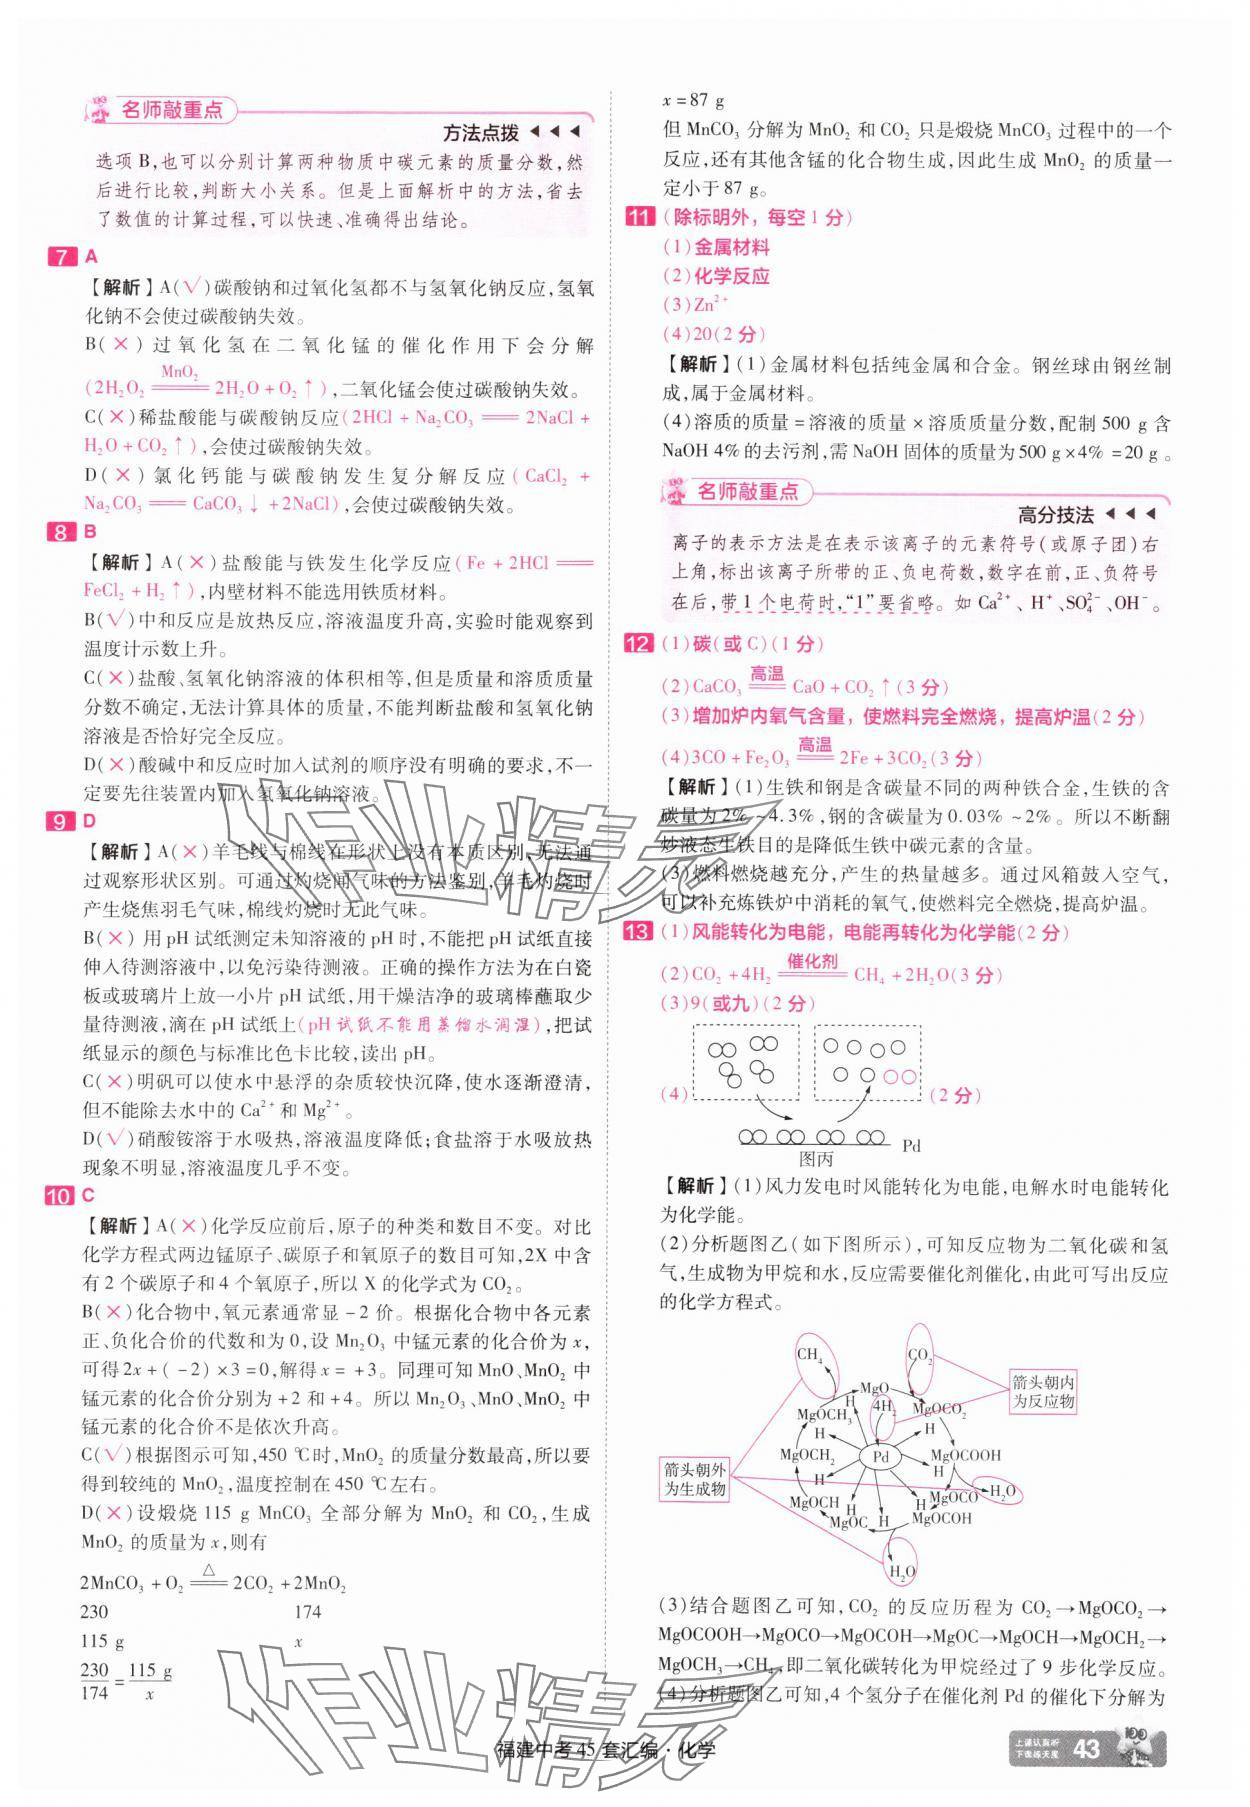 名师敲重点
方法点拨
选项 B,也可以分别计算两种物质中碳元素的质量分数,然
后进行比较,判断大小关系。但是上面解析中的方法,省去
了数值的计算过程,可以快速、准确得出结论。
7 A
【解析】A(√)碳酸钠和过氧化氢都不与氢氧化钠反应,氢氧
化钠不会使过碳酸钠失效。
B(×)过氧化氢在二氧化锰的催化作用下会分解
MnO₂
(2H₂O₂ ══ 2H₂O + O₂↑),二氧化锰会使过碳酸钠失效。
C(×)稀盐酸能与碳酸钠反应(2HCl + Na₂CO₃ ══ 2NaCl +
H₂O + CO₂↑),会使过碳酸钠失效。
D(×)氯化钙能与碳酸钠发生复分解反应(CaCl₂ +
Na₂CO₃ ══ CaCO₃↓ +2NaCl),会使过碳酸钠失效。
8 B
【解析】A(×)盐酸能与铁发生化学反应(Fe + 2HCl ══
FeCl₂ + H₂↑),内壁材料不能选用铁质材料。
B(√)中和反应是放热反应,溶液温度升高,实验时能观察到
温度计示数上升。
C(×)盐酸、氢氧化钠溶液的体积相等,但是质量和溶质质量
分数不确定,无法计算具体的质量,不能判断盐酸和氢氧化钠
溶液是否恰好完全反应。
D(×)酸碱中和反应时加入试剂的顺序没有明确的要求,不一
定要先往装置内加入氢氧化钠溶液。
9 D
【解析】A(×)羊毛线与棉线在形状上没有本质区别,无法通
过观察形状区别。可通过灼烧闻气味的方法鉴别,羊毛灼烧时
产生烧焦羽毛气味,棉线灼烧时无此气味。
B(×)用 pH 试纸测定未知溶液的 pH 时,不能把 pH 试纸直接
伸入待测溶液中,以免污染待测液。正确的操作方法为在白瓷
板或玻璃片上放一小片 pH 试纸,用干燥洁净的玻璃棒蘸取少
量待测液,滴在 pH 试纸上(pH 试纸不能用蒸馏水润湿),把试
纸显示的颜色与标准比色卡比较,读出 pH。
C(×)明矾可以使水中悬浮的杂质较快沉降,使水逐渐澄清,
但不能除去水中的 Ca²⁺ 和 Mg²⁺。
D(√)硝酸铵溶于水吸热,溶液温度降低;食盐溶于水吸放热
现象不明显,溶液温度几乎不变。
10 C
【解析】A(×)化学反应前后,原子的种类和数目不变。对比
化学方程式两边锰原子、碳原子和氧原子的数目可知,2X 中含
有 2 个碳原子和 4 个氧原子,所以 X 的化学式为 CO₂。
B(×)化合物中,氧元素通常显 -2 价。根据化合物中各元素
正、负化合价的代数和为 0,设 Mn₂O₃ 中锰元素的化合价为 x,
可得 2x + (-2) ×3 =0,解得 x = +3。同理可知 MnO、MnO₂ 中
锰元素的化合价分别为 +2 和 +4。所以 Mn₂O₃、MnO、MnO₂ 中
锰元素的化合价不是依次升高。
C(√)根据图示可知,450 ℃时,MnO₂ 的质量分数最高,所以要
得到较纯的 MnO₂,温度控制在 450 ℃左右。
D(×)设煅烧 115 g MnCO₃ 全部分解为 MnO₂ 和 CO₂,生成
MnO₂ 的质量为 x,则有
△
2MnCO₃ + O₂ ══ 2CO₂ +2MnO₂
230 174
115 g x
230/174 = 115 g/x
x = 87 g
但 MnCO₃ 分解为 MnO₂ 和 CO₂ 只是煅烧 MnCO₃ 过程中的一个
反应,还有其他含锰的化合物生成,因此生成 MnO₂ 的质量一
定小于 87 g。
11 (除标明外,每空 1 分)
(1)金属材料
(2)化学反应
(3)Zn²⁺
(4)20(2 分)
【解析】(1)金属材料包括纯金属和合金。钢丝球由钢丝制
成,属于金属材料。
(4)溶质的质量 = 溶液的质量 × 溶质质量分数,配制 500 g 含
NaOH 4%的去污剂,需 NaOH 固体的质量为 500 g×4% =20 g。
名师敲重点
高分技法
离子的表示方法是在表示该离子的元素符号(或原子团)右
上角,标出该离子所带的正、负电荷数,数字在前,正、负符号
在后,带 1 个电荷时,“1”要省略。如 Ca²⁺、H⁺、SO₄²⁻、OH⁻。
12 (1)碳(或 C)(1 分)
高温
(2)CaCO₃ ══ CaO + CO₂↑(3 分)
(3)增加炉内氧气含量,使燃料完全燃烧,提高炉温(2 分)
高温
(4)3CO + Fe₂O₃ ══ 2Fe + 3CO₂(3 分)
【解析】(1)生铁和钢是含碳量不同的两种铁合金,生铁的含
碳量为 2% ~4.3%,钢的含碳量为 0.03% ~2%。所以不断翻
炒液态生铁目的是降低生铁中碳元素的含量。
(3)燃料燃烧越充分,产生的热量越多。通过风箱鼓入空气,
可以补充炼铁炉中消耗的氧气,使燃料完全燃烧,提高炉温。
13 (1)风能转化为电能,电能再转化为化学能(2 分)
催化剂
(2)CO₂ +4H₂ ══ CH₄ +2H₂O(3 分)
(3)9(或九)(2 分)
(4) (2 分)
Pd
图丙
【解析】(1)风力发电时风能转化为电能,电解水时电能转化
为化学能。
(2)分析题图乙(如下图所示),可知反应物为二氧化碳和氢
气,生成物为甲烷和水,反应需要催化剂催化,由此可写出反应
的化学方程式。
CH₄ CO₂
箭头朝内
为反应物
MgO
4H₂
MgOCH₃ H MgOCO₂
H H
MgOCH₂ Pd MgOCOOH
箭头朝外
为生成物
H H
MgOCH H H H MgOCO H₂O
MgOC MgOCOH
H₂O
(3)结合题图乙可知,CO₂ 的反应历程为 CO₂→MgOCO₂→
MgOCOOH→MgOCO→MgOCOH→MgOC→MgOCH→MgOCH₂→
MgOCH₃→CH₄,即二氧化碳转化为甲烷经过了 9 步化学反应。
(4)分析题图乙可知,4 个氢分子在催化剂 Pd 的催化下分解为
福建中考 45 套汇编·化学
上课认真听
下课练天星
43
作业精灵
作业精灵